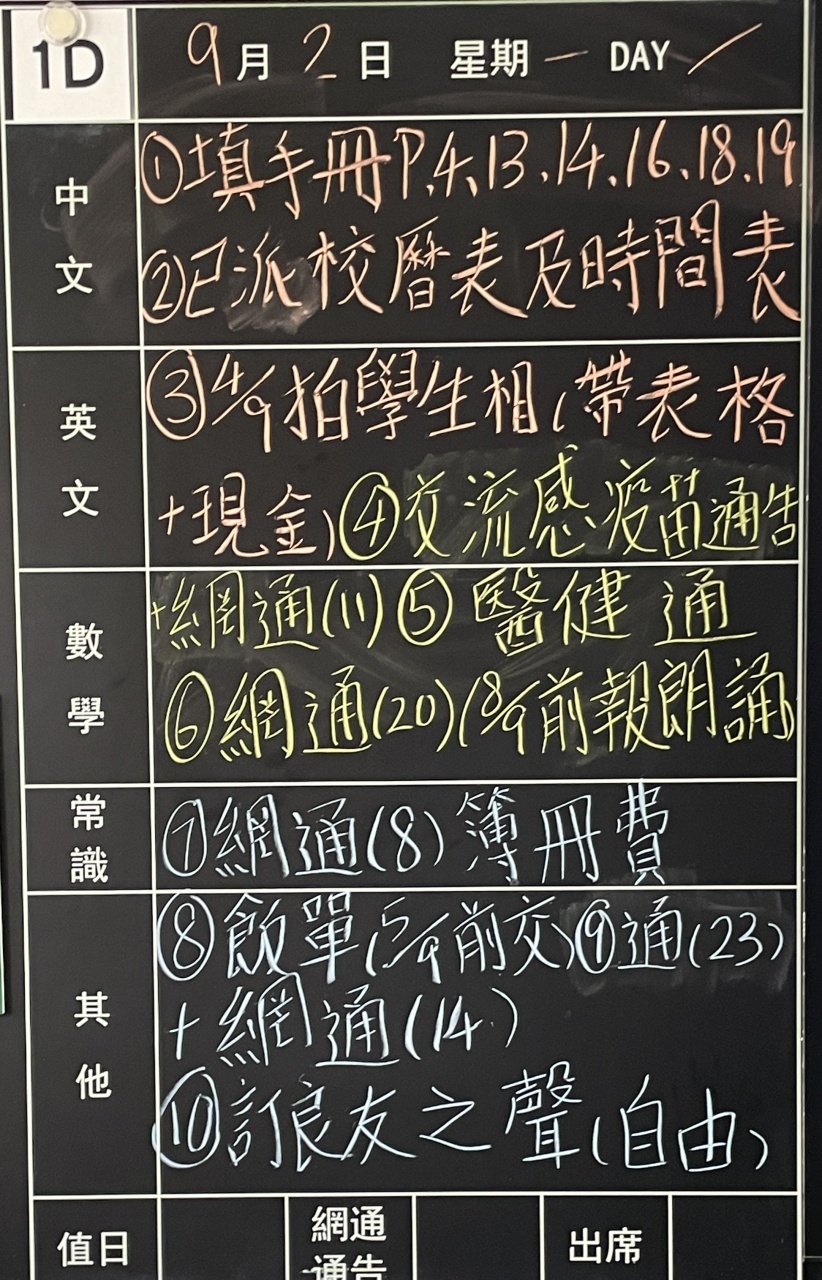 1D 9月2日 星期一 DAY /
中文
①填手冊P.4、13、14、16、18、19
②已派校曆表及時間表
英文
③4/9拍學生相(帶表格
+現金)④交流感疫苗通告
數學
+網通(11)⑤醫健通
⑥網通(20)(8/9前報朗誦)
常識
⑦網通(8)簿冊費
其他
⑧飯單(5/9前交)⑨通(23)
+網通(14)
⑩訂良友之聲(自由)
值日 網通 出席
通告